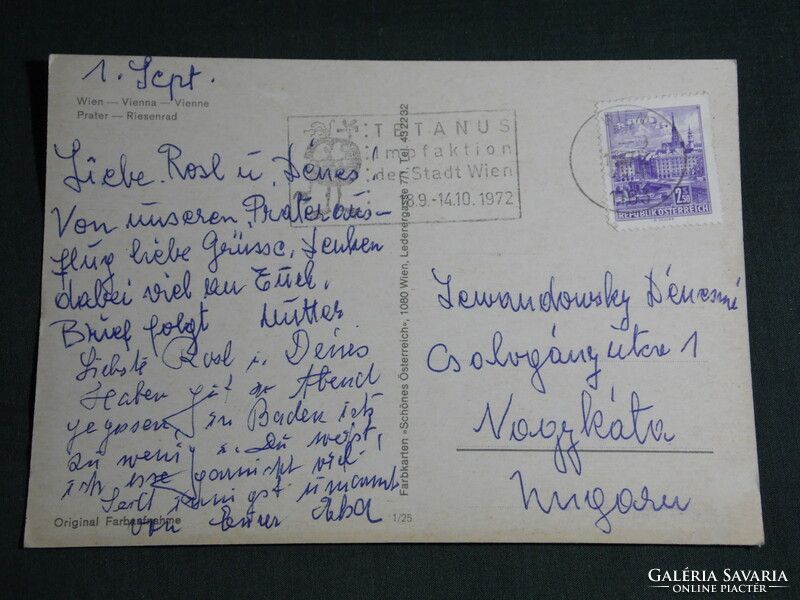 1. Sept.
Wien — Vienna — Vienne
Prater — Riesenrad
Liebe Rosl u. Dénes!
Von unseren Prateraus-
flug liebe Grüsse, denken
dabei viel an Euch,
Brief folgt Mutter
Liebste Rosl u. Dénes
Haben gut zu Abend
gegessen, in Baden ich
zu wenig. Du weißt,
ich esse garnicht viel.
Seit innigst umarmt
von Eurer
Original Farbaufnahme
1/25
Farbkarten »Schönes Österreich«, 1080 Wien, Lederergasse 7/1, Tel. 43 22 32
TETANUS
Impfaktion
der Stadt Wien
18.9.-14.10.1972
2.50
REPUBLIK ÖSTERREICH
Lewandowsky Dénesné
Csalogány utca 1
Nagykáta
Ungarn
GALÉRIA SAVARIA
ONLINE PIACTÉR